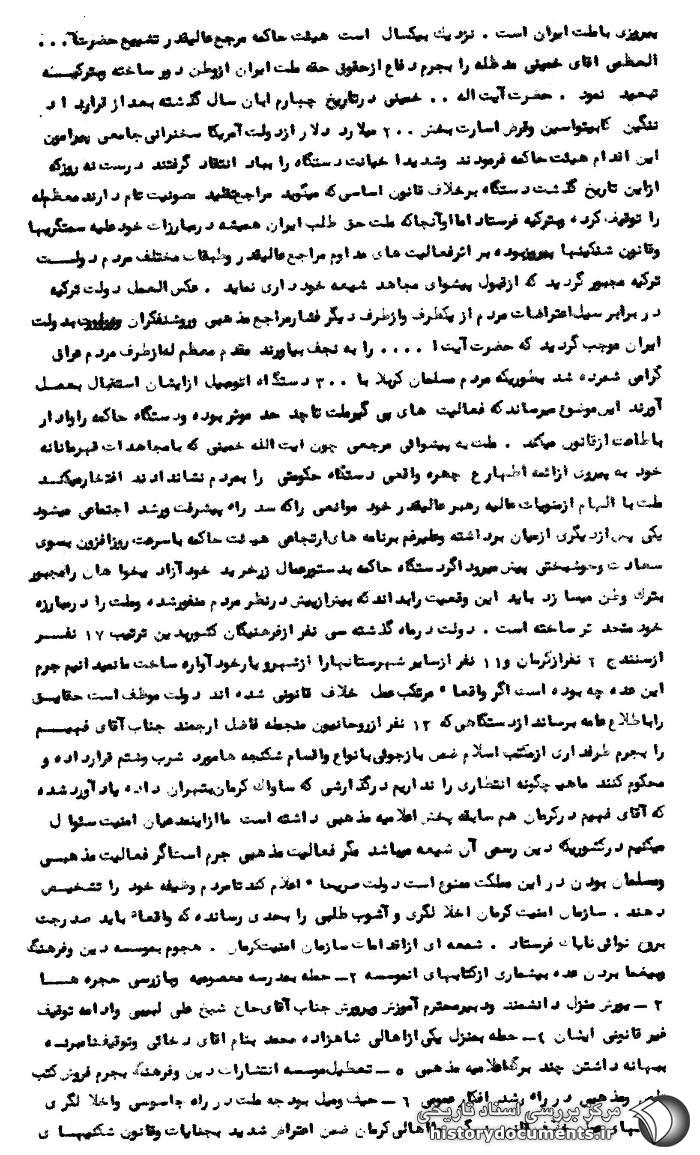 پیروزی باملت ایران است . نزدیك بیكسال است هیئت حاكمه مرجع عالیقدر تشییع حضرت آ...
العظمی اقای خمینی مدظله را بجرم دفاع ازحقوق حقه ملت ایران ازوطن دور ساخته وبتركیــه
تبعید نمود . حضرت آیت اله .. خمینی درتاریخ چهارم ابان سال گذشته بعد از قرارداد
ننگین كاپیتولسین وقرض اسارت بخش ۲۰۰ میلارد دلار ازدولت آمریكا سخنرانی جامعی پیرامون
این اقدام هیئت حاكمه فرمودند وشدیدا خیانت دستگاه را بباد انتقاد گرفتند درست نه روزكه
ازاین تاریخ گذشت دستگاه برخلاف قانون اساسی كه میگوید مراجع تقلید مصونیت تام دارند معظم‌له
را توقیف كرده وبتركیه فرستاد اما اوآنجاكه ملت حق طلب ایران همیشه درمبارزات خودعلیه ستمگریها
وقانون شكنیها پیروزبوده بر اثرفعالیت های مداوم مراجع عالیقدر وطبقات مختلف مردم دولــت
تركیه مجبور گردید كه ازقبول پیشوای مجاهد شیعه خود داری نماید . عكس العمل دولت تركیه
در برابر سیل اعتراضات مردم از یكطرف وازطرف دیگر فشارمراجع مذهبی وروشنفكران بدولت
ایران موجب گردید كه حضرت آیت ا .... را به نجف بیاورند مقدم معظم له ازطرف مردم عراق
گرامی شمرده شد بطوریكه مردم مسلمان كربلا با ۳۰۰ دستگاه اتومبیل ازایشان استقبال بعمــل
آورند این موضوع میرساند كه فعالیت های پی گیرملت تاچد حد موثر بوده ودستگاه حاكمه راوادار
باطاعت ازقانون میكند . ملت به پیشوائی مرجعی چون ایت الله خمینی كه بامجاهدات قهرمانانه
خود به پیروی ازائمه اطهارع چهره واقعی دستگاه حكومتی را بمردم نشاندادند افتخارمیكنــد
ملت با الهام ازمنویات عالیه رهبر عالیقدر خود موانعی راكه سد راه پیشرفت ورشد اجتماعی میشود
یكی پس ازدیگری ازمیان برداشته وعلیرغم برنامه های ارتجاعی هیئت حاكمه باسرعت روزافزون بسوی
سعادت وخوشبختی پیش میرود اگردستگاه حاكمه بدستورعمال زرخرید خودآزاد یخواهان رامجبور
بترك وطن میسازد باید این وقعیت رابداند كه بیش ازپیش درنظر مردم منفورشده وملت را درمبارزه
خود متحد تر ساخته است . دولت درماه گذشته سی نفر ازفرهنگیان كشوربدین ترتیب ۱۷ نفــر
ازسنندج ۲ نفرازكرمان و۱۱ نفر ازسایر شهرستانهارا ازشهرو یارخود آواره ساخت ما نمیدانیم جرم
این عده چه بوده است اگر واقعا" مرتكب عمل خلاف قانونی شده اند دولت موظف است حقایــق
راباطلاع عامه برساند ازدستگاهی كه ۱۲ نفر ازروحانیون منجمله فاضل ارجمند جناب آقای فهیــم
را بجرم طرفداری ازمكتب اسلام ضمن بازجوئی بانواع واقسام شكنجه هامورد ضرب وشتم قرارداده و
محكوم كنند ماهیچگونه انتظاری را نداریم درگذارشی كه ساواك كرمان بتهران داده یاد آورد شده
كه آقای فهیم دركرمان هم سابقه پخش اعلامیه مذهبی داشته است ماازاین مدعیان امنیت سئوال
میكنیم دركشوریكه دین رسمی آن شیعه میباشد مگر فعالیت مذهبی جرم است اگر فعالیت مذهبــی
ومسلمان بودن در این مملكت ممنوع است دولت صریحا" اعلام كند تامردم وظیفه خود را تشخیــص
دهند . سازمان امنیت كرمان اخلا لگری و آشوب طلبی را بحدی رسانده كه واقعا" باید صد رحمت
بروح نوائی ناپاك فرستاد . شمه ای ازاقدامات سازمان امنیت كرمان . هجوم بموسسه دین وفرهنگ
وبیغما بردن عده بیشماری ازكتابهای انموسسه ۲ــ حمله بمدرسه معصومیه وبازرسی حجره هــا
۳ ــ یورش بمنزل دانشمند ودبیر محترم آموزش وپرورش جناب آقای حاج شیخ علی لبیبی وادامه توقیف
غیر قانونی ایشان ۴ــ حمله بمنزل یكی ازاهالی شاهزاده محمد بنام اقای دخائی وتوقیف نامبرده
ببهانه داشتن چند برگ اعلامیه مذهبی ۵ ــ تعطیل موسسه انتشارات دین وفرهنگ بجرم فروش كتب
ومذهبی در راه رشد افكار عمومی ۶ ــ حیف ومیل بودجه ملت در راه جاسوسی واخلا لگری
اهالی كرمان ضمن اعتراض شدید بجنایات وقانون شكنیهــای
مركز بررسی اسناد تاریخی
historydocuments.ir